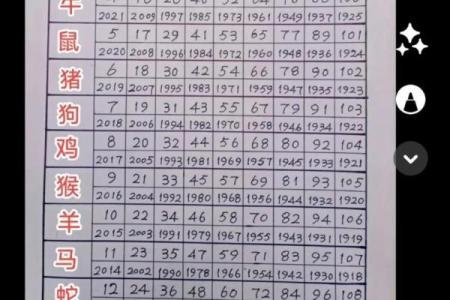 牛
2021 2009 1997 1985 1973 1961 1949 1937 1925
鼠 5 17 29 41 53 65 77 89 101
2020 2008 1996 1984 1972 1960 1948 1936 1924
猪 6 18 30 42 54 66 78 90 102
2019 2007 1995 1983 1971 1959 1947 1935 1923
狗 7 19 31 43 55 67 79 91 103
2018 2006 1994 1982 1970 1958 1946 1934 1922
鸡 8 20 32 44 56 68 80 92 104
2017 2005 1993 1981 1969 1957 1945 1933 1921
猴 9 21 33 45 57 69 81 93 105
2016 2004 1992 1980 1968 1956 1944 1932 1920
羊 10 22 34 46 58 70 82 94 106
2015 2003 1991 1979 1967 1955 1943 1931 1919
马 11 23 35 47 59 71 83 95 107
2014 2002 1990 1978 1966 1954 1942 1930 1918
蛇 12 24 36 48 60 72 84 96 108